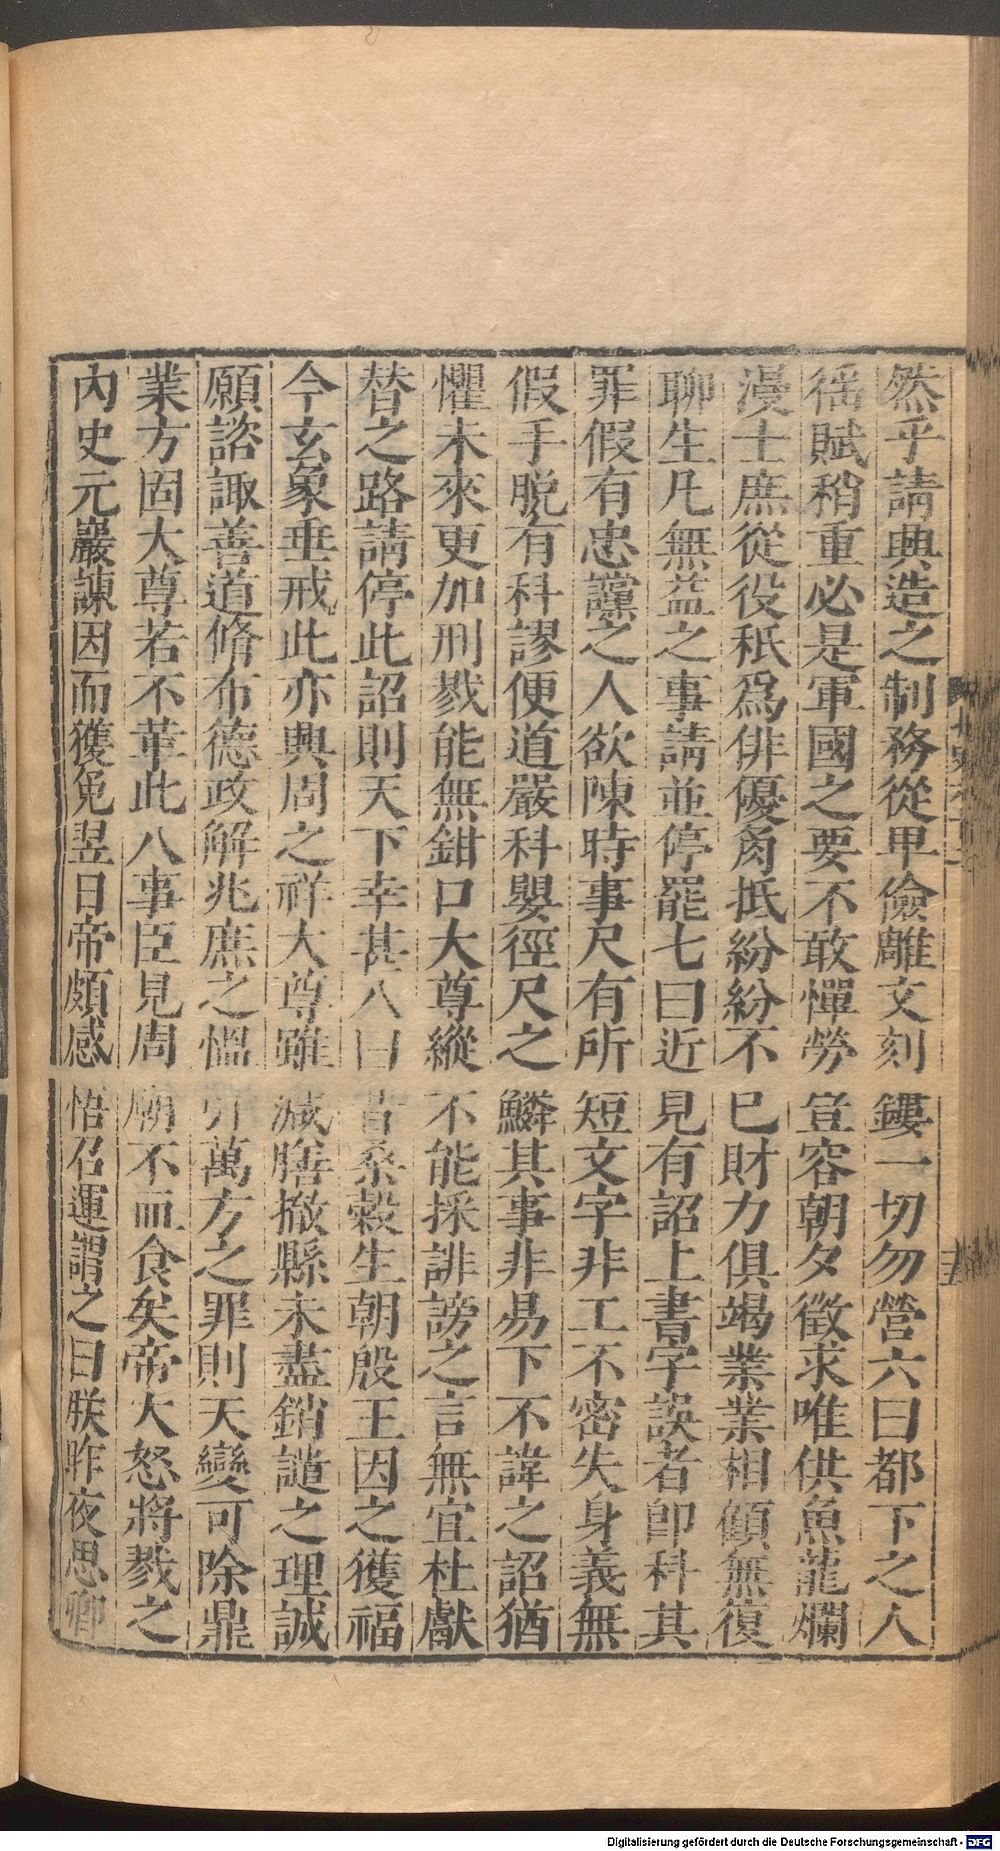 然乎請興造之制務從卑儉雕文刻鏤一切勿營六曰都下之人
徭賦稍重必是軍國之要不敢憚勞豈容朝夕徵求唯供魚龍爛
漫士庶從役秖爲俳優角抵紛紛不已財力俱竭業業相顧無復
聊生凡無益之事請並停罷七曰近見有詔上書字誤者卽科其
罪假有忠讜之人欲陳時事尺有所短文字非工不密失身義無
假手脫有科謬便道嚴科嬰徑尺之鱗其事非易下不諱之詔猶
懼未來更加刑戮能無鉗口大尊縱不能採誹謗之言無宜杜獻
替之路請停此詔則天下幸甚八曰昔桑穀生朝殷王因之獲福
今玄象垂戒此亦興周之祥大尊雖減膳撤縣未盡銷譴之理誠
願諮諏善道脩布德政解兆庶之慍引萬方之罪則天變可除鼎
業方固大尊若不革此八事臣見周廟不血食矣帝大怒將戮之
內史元巖諫因而獲免翌日帝頗感悟召運謂之曰朕昨夜思卿
十五
Digitalisierung gefördert durch die Deutsche Forschungsgemeinschaft - DFG